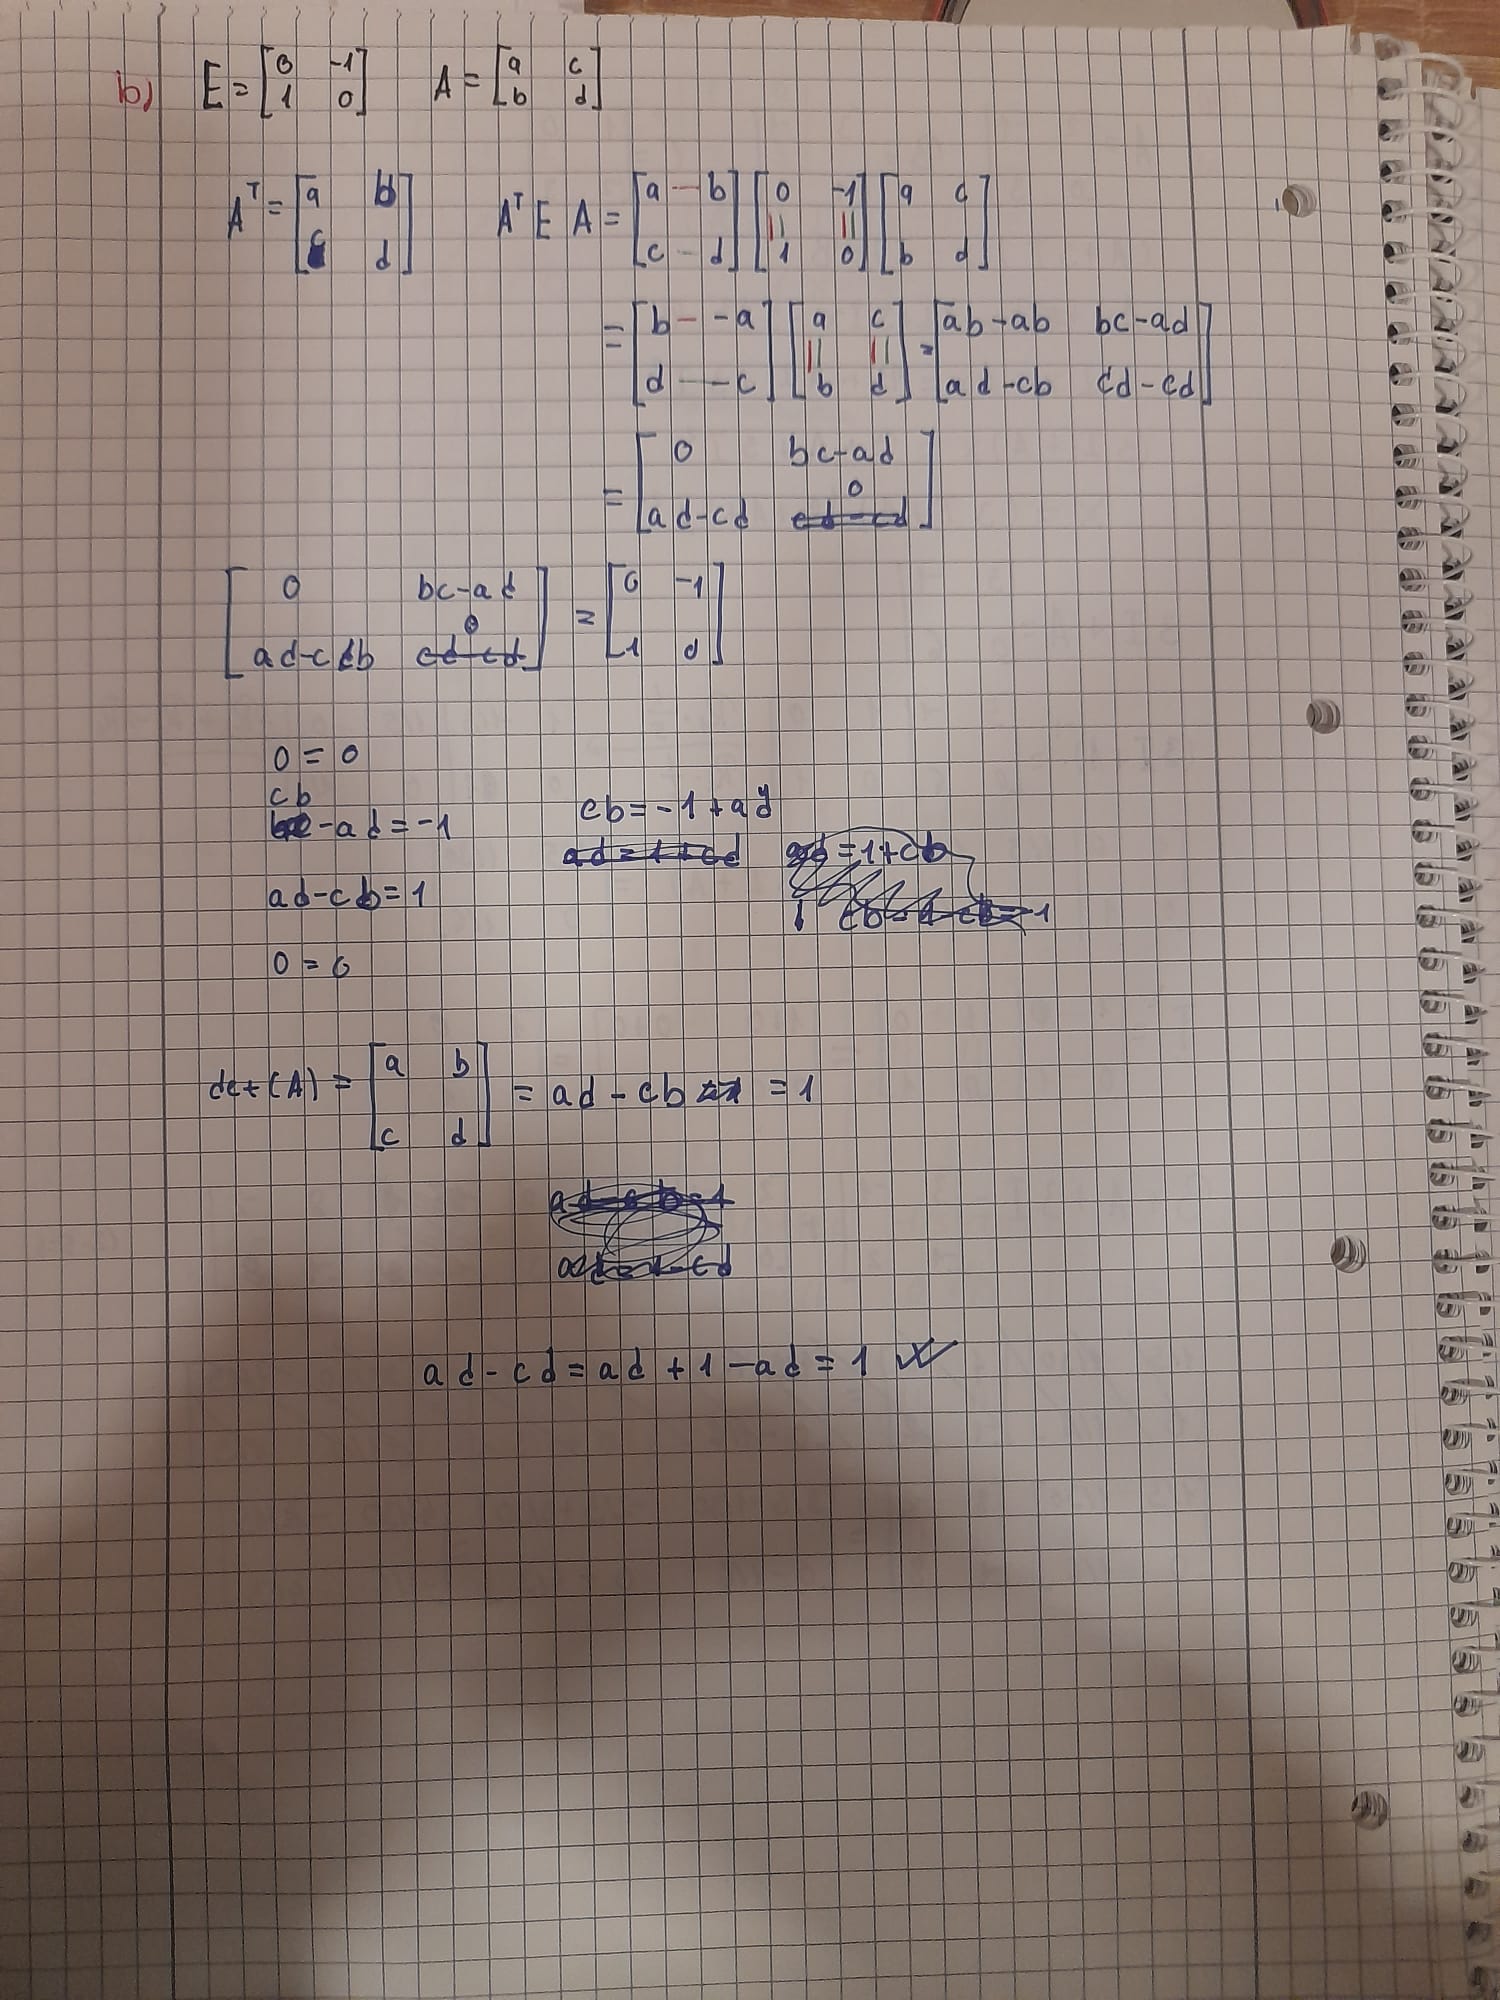 b) E = [0 -1; 1 0] A = [a c; b d]
A^T = [a b; c d] A^T E A = [a b; c d] [0 -1; 1 0] [a c; b d]
= [b -a; d -c] [a c; b d] = [ab-ab bc-ad; ad-cb cd-cd]
= [0 bc-ad; ad-cd 0]
[0 bc-ad; ad-cb 0] = [0 -1; 1 d]
0 = 0
cb - ad = -1 cb = -1 + ad
ad = 1 + cd ad = 1 + cb
ad - cb = 1
0 = 0
det(A) = [a b; c d] = ad - cb = 1
ad - cb = 1
ad - cd = ad + 1 - ad = 1